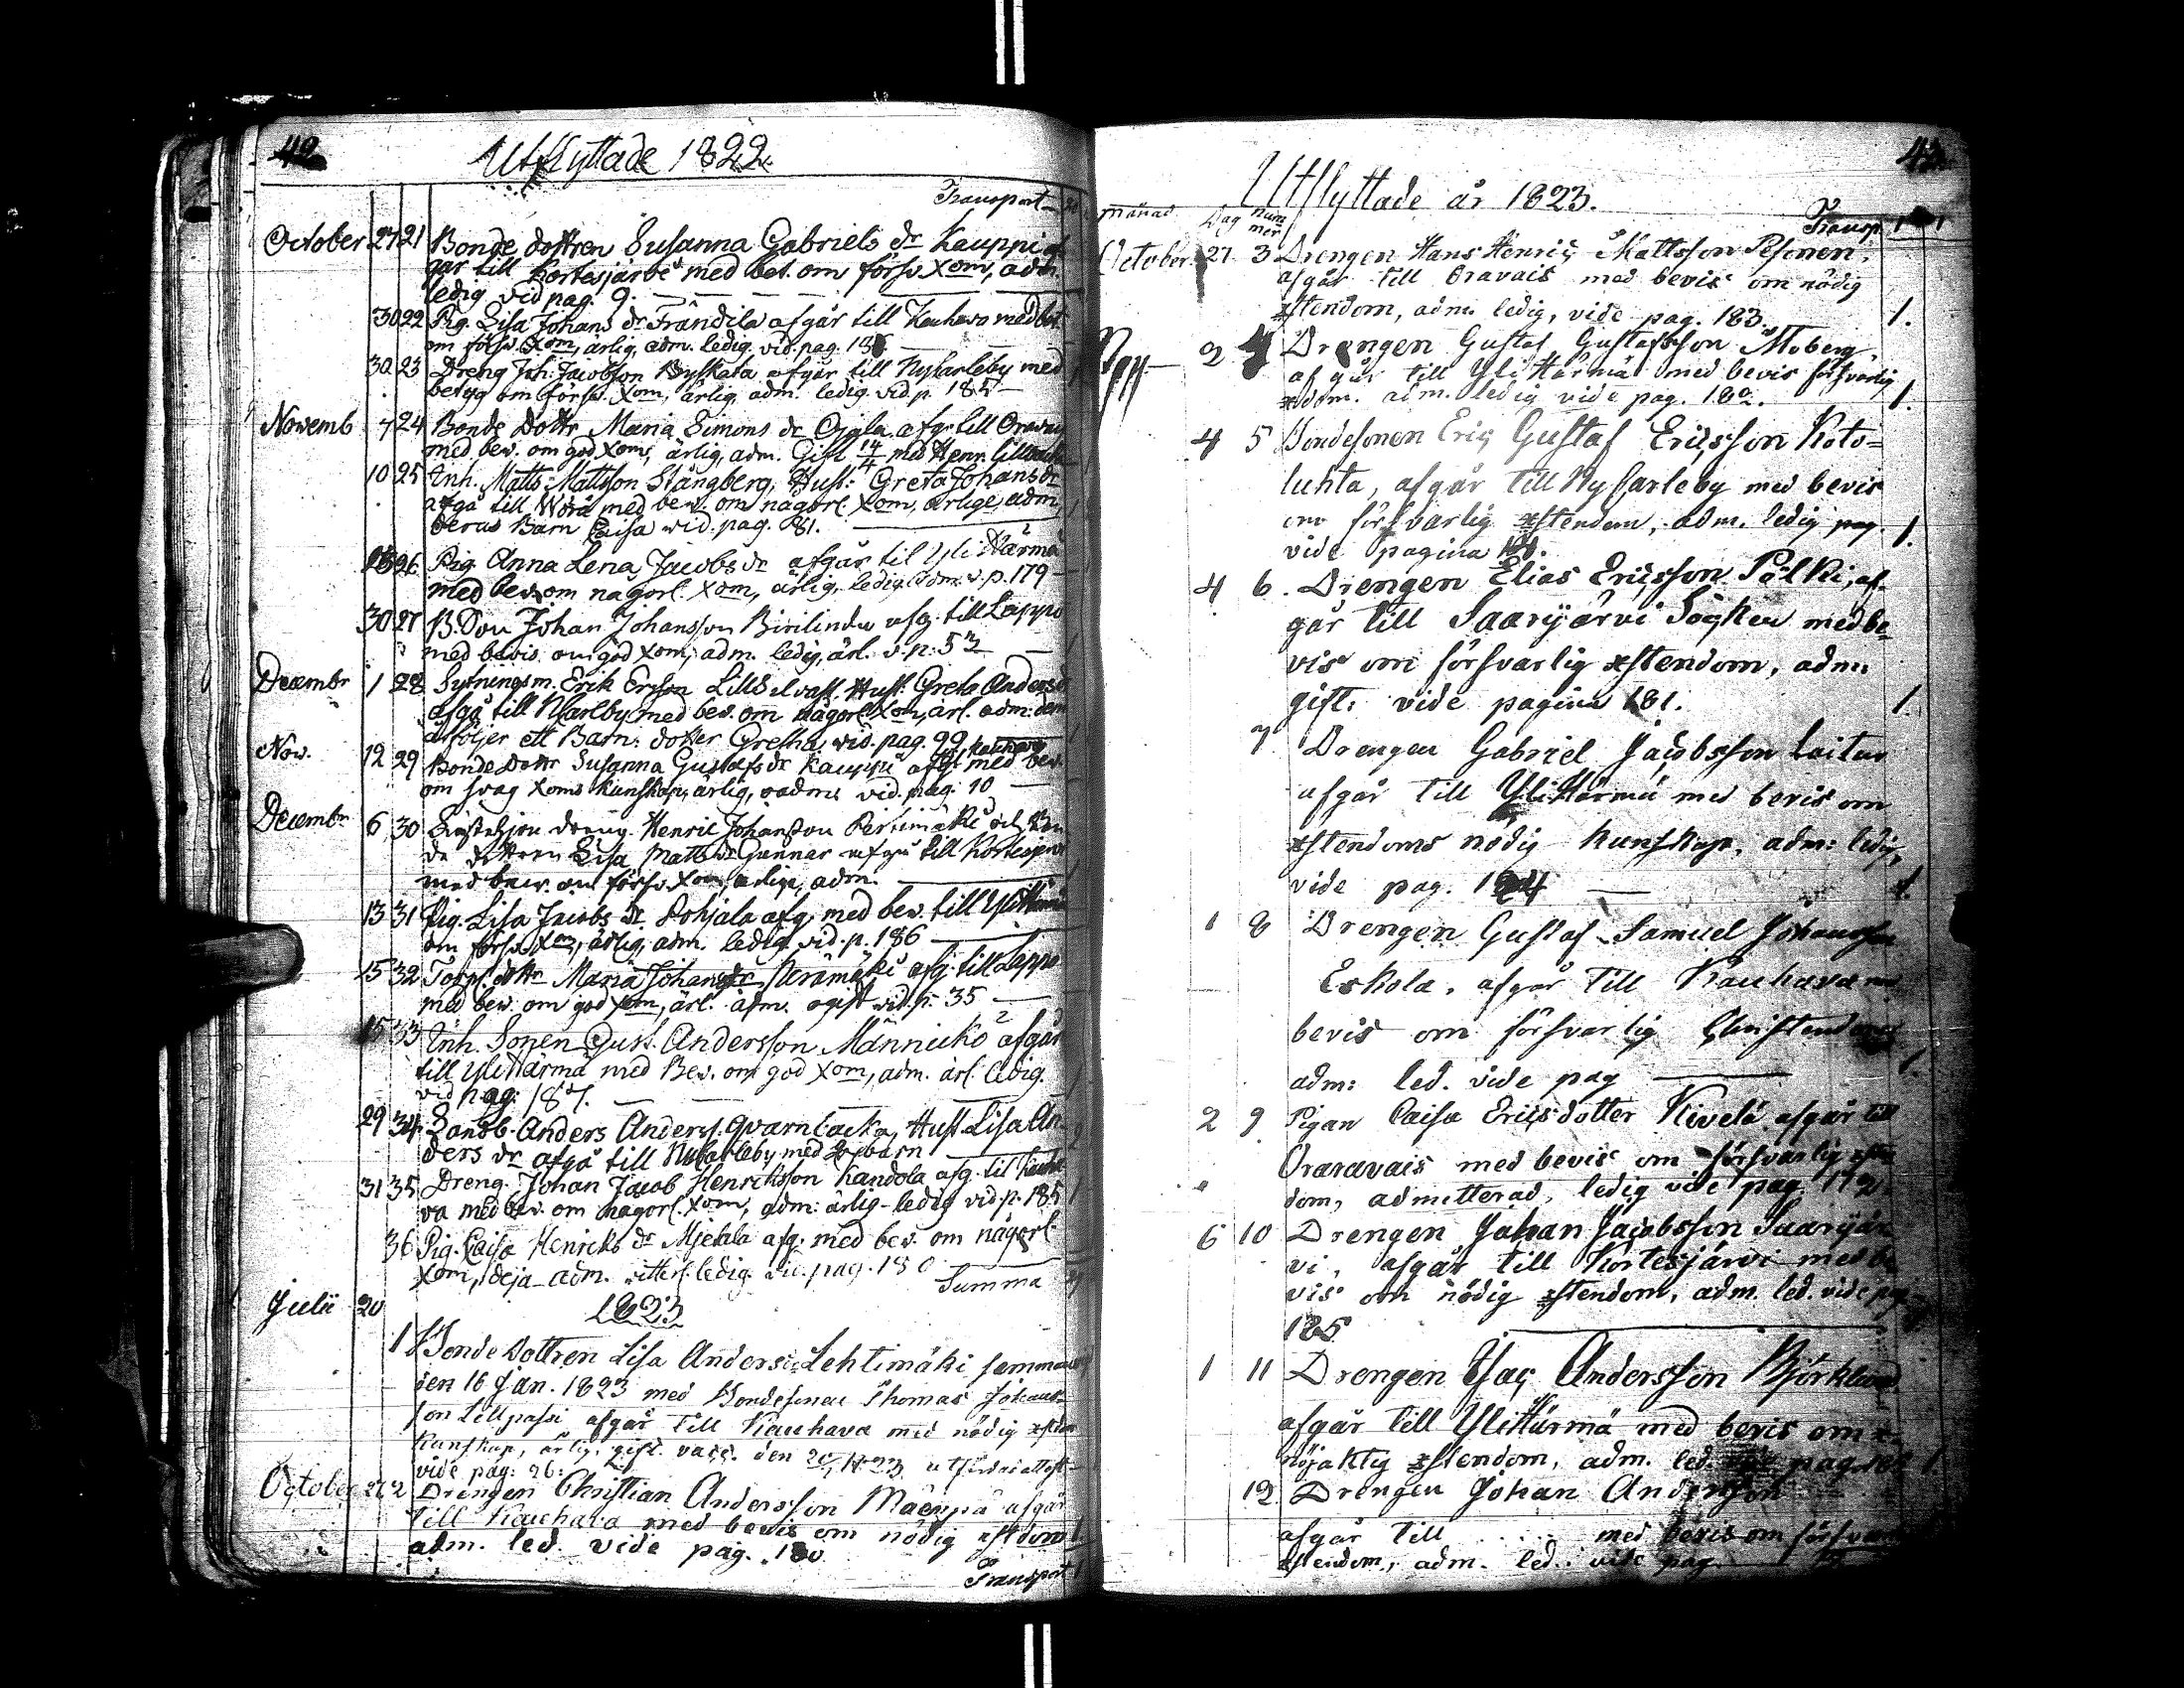 42
Utflyttade 1822
Transport
October 27 21 Bonde dottren Susanna Gabriels dr Kauppi af
går till Kortesjärvi med bet. om försv. Xom, adm.
ledig vid pag. 9.
30 22 Pig. Lisa Johans dr Frändilä afgår till Kauhava med bet.
om försv. Xom, ärlig, adm. ledig. vid. pag.
30 23 Dreng Joh. Jacobsson Byskata afgår till Nykarleby med
betyg om försv. Xom, ärlig, adm. ledig. vid. p. 185
Novemb 7 24 Bonde Dottr Maria Simons dr Ojala afgr till Oravais
med bev. om god Xom, ärlig, adm. Gift 14/4 med Henr.
10 25 Inh. Matts Mattsson Stångberg, Hust: Greta Johans dr
afgå till Wörå med bev. om någorl. Xom, ärlige, adm.
deras Barn Caisa vid. pag. 81.
26 Pig Anna Lena Jacobs dr afgår til Yli Härmä
med bev. om någorl. Xom, ärlig, ledig. adm. v. p. 179
30 27 B. Son Johan Johansson afg. till Lappo
med bevis om god Xom, adm. ledig, ärl. v. p. 53
Decembr 1 28 Sytningsm. Erik Ersson Hust. Greta Anders dr
afgå till NCarlby med bev. om någorl. Xom, ärl. adm. dem
åtföljer ett Barn: dotter Gretha, vid. pag. 99
Nov. 12 29 Bonde Dottr Susanna Gustafs dr Kauppi afgr Kauhava med bev.
om svag Xoms kunskap, ärlig, oadm. vid. pag. 10
Decembr 6 30 dreng. Henric Johansson Perimäki och Bon
de dottren Lisa Matts dr Gunnar afgå till Kortesjärvi
med bew. om försv. Xom, ärlige, adm.
13 31 Pig. Lisa Jacobs dr Pohjala afg. med bev. till Yli Härmä
om försv. Xom, ärlig, adm. ledig vid. p. 186
15 32 Torp. dottr Maria Johans dr Perämäki afg. till Lappo
med bew. om god Xom, ärl. adm. ogift vid. p. 35
15 33 Inh. Sonen Gust. Andersson Männickö afgår
till Yli Härmä med Bev. om god Xom, adm. ärl. ledig.
vid pag: 187.
29 34 Landb. Anders Anders. Qvarnbacka, Hust. Lisa An
ders dr afgå till NyCarleby med barn
31 35 Dreng. Johan Jacob Henriksson Kandola afg. til Kauha
va med bev. om någorl. Xom, adm: ärlig - ledig vid. p. 185
36 Pig. Caisa Henriks dr Mjetala afg. med bev. om någorl
Xom, adm. ledig. vid. pag. 180
Summa
Julii 20 1823
1 Bonde Dottren Lisa Anders dr Lehtimäki
den 16 Jan. 1823 med Bondesonen Thomas Johans-
son Lillpassi afgår till Kauhava med nödig xstdom
kunskap, ärlig, gift. vacc. den
vide pag: 26:
October 27 2 Drengen Christian Andersson Mäenpä afgår
till Kauhava med bevis om nödig xstdom 1.
adm. led. vide pag. 180
Transport
43
Utflyttade år 1823.
månad Dag num mer Transp.
October. 27. 3 Drengen Hans Henric Mattsson Pesonen,
afgår till Oravais med bevis om nödig
xstendom, adm. ledig, vide pag. 183. 1.
2 4 Drengen Gustaf Gustafsson Moberg
afgår till Yli Härmä med bevis försvarlig
xdom. adm. ledig vide pag. 182. 1.
4 5 Bondesonen Eric Gustaf Ericsson Koto=
luhta, afgår till NyCarleby med bevis
om försvarlig xstendom, adm. ledig pag. 1.
vide pagina
4 6. Drengen Elias Ericsson Pölki, af-
går till Saarijärvi Socken med be
vis om försvarlig xstendom, adm.
gift: vide pagina 181. 1.
7 Drengen Gabriel Jacobsson Laitur
afgår till Yli Härmä med bevis om
xstendoms nödig kunskap, adm: ledig,
vide pag.
1 8 Drengen Gustaf Samuel Johansson
Eskola, afgår till Kauhava med
bevis om försvarlig Christendom
adm: led. vide pag 1.
2 9 Pigan Caisa Ericsdotter Kivelä afgår till
Oraravais med bevis om försvarlig xsten
dom, admitterad, ledig vide pag. 172
6 10 Drengen Johan Jacobsson Saarijär
vi, afgår till Kortesjärvi med be
vis om nödig xstendom, adm. led. vide pag
185
1 11 Drengen Isac Andersson Björklund
afgår till Yli Härmä med bevis om
nöjaktig xstendom, adm. led. vide pag.
12. Drengen Johan Andersson
afgår till . . . . . med bevis om försvar
xstendom, adm. led. vide pag